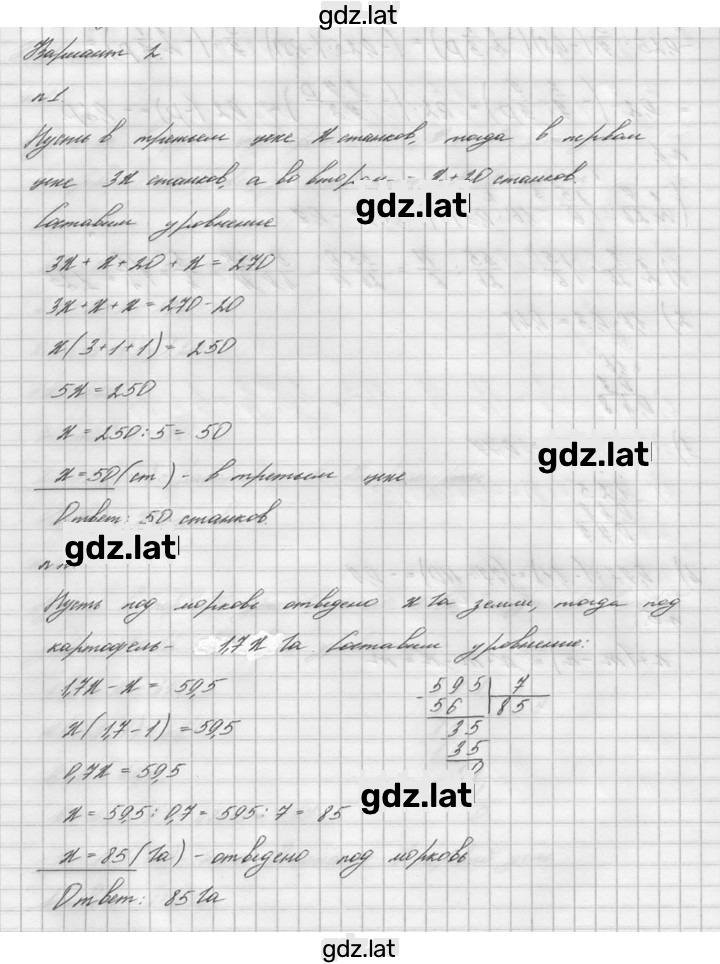 gdz.lat
Вариант 2.
n 1
Пусть в третьем цехе x станков, тогда в первом
цехе 3x станков, а во x+20 станков.
gdz.lat
Составим уровнение
3x + x + 20 + x = 270
3x + x + x = 270 - 20
x(3+1+1) = 250
5x = 250
x = 250 : 5 = 50
gdz.lat
x = 50 (ст) - в третьем цехе
Ответ: 50 станков.
gdz.lat
Пусть под морковь отведено x га земли, тогда под
картофель - 1,7x га. Составим уровнение:
1,7x - x = 59,5
x(1,7 - 1) = 59,5
0,7x = 59,5
x = 59,5 : 0,7 = 595 : 7 = 85
x = 85 (га) - отведено под морковь
Ответ: 85 га
- 595 | 7
56 | 85
35
35
0
gdz.lat
gdz.lat